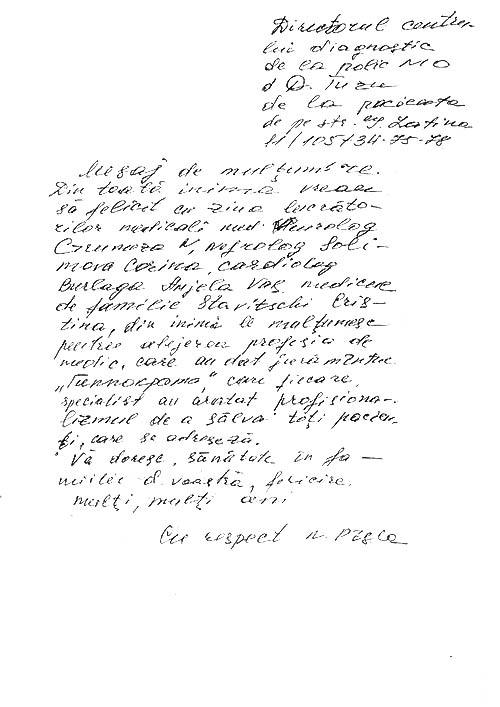 Directorul centru-
lui diagnostic
de la polic MO
d D. Țurcu
de la pacienta
de pe str.
11/105/34-75-78
Mesaj de mulțumire.
Din toată inima vreau
să felicit cu ziua lucrăto-
rilor medicali med Neurolog
N, nefrolog Soli-
mova Corina, cardiolog
Burlaga Anjela Vas, medicere
de familie Stavițschi Cris-
tina, din inimă le mulțumesc
pentru profesia de
medic, care au dat jurămîntul
„Гиппократа", care fiecare
specialist au arătat profisiona-
lizmul de a sălva toți pacien-
ți, care se adresează.
Vă doresc, sănătate în fa-
miilie d-voastră, felicire,
mulți, mulți ani
Cu respect N.